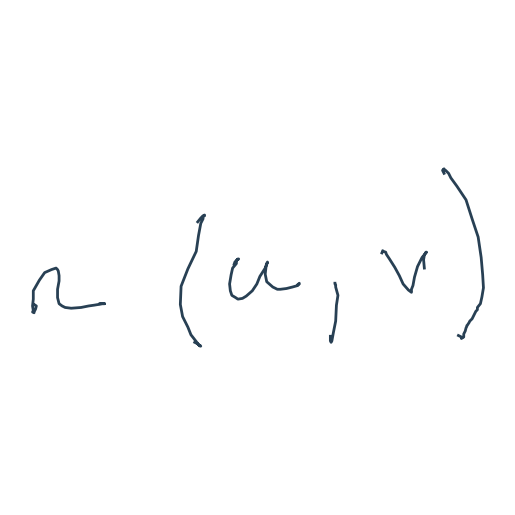 r (u, v)